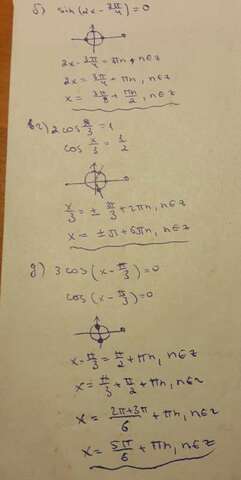 б) sin(2x - 3π/4) = 0
2x - 3π/4 = πn, n∈z
2x = 3π/4 + πn, n∈z
x = 3π/8 + πn/2, n∈z
в г) 2cos x/3 = 1
cos x/3 = 1/2
x/3 = ± π/3 + 2πn, n∈z
x = ± π + 6πn, n∈z
д) 3cos(x - π/3) = 0
cos(x - π/3) = 0
x - π/3 = π/2 + πn, n∈z
x = π/3 + π/2 + πn, n∈z
x = 2π+3π/6 + πn, n∈z
x = 5π/6 + πn, n∈z